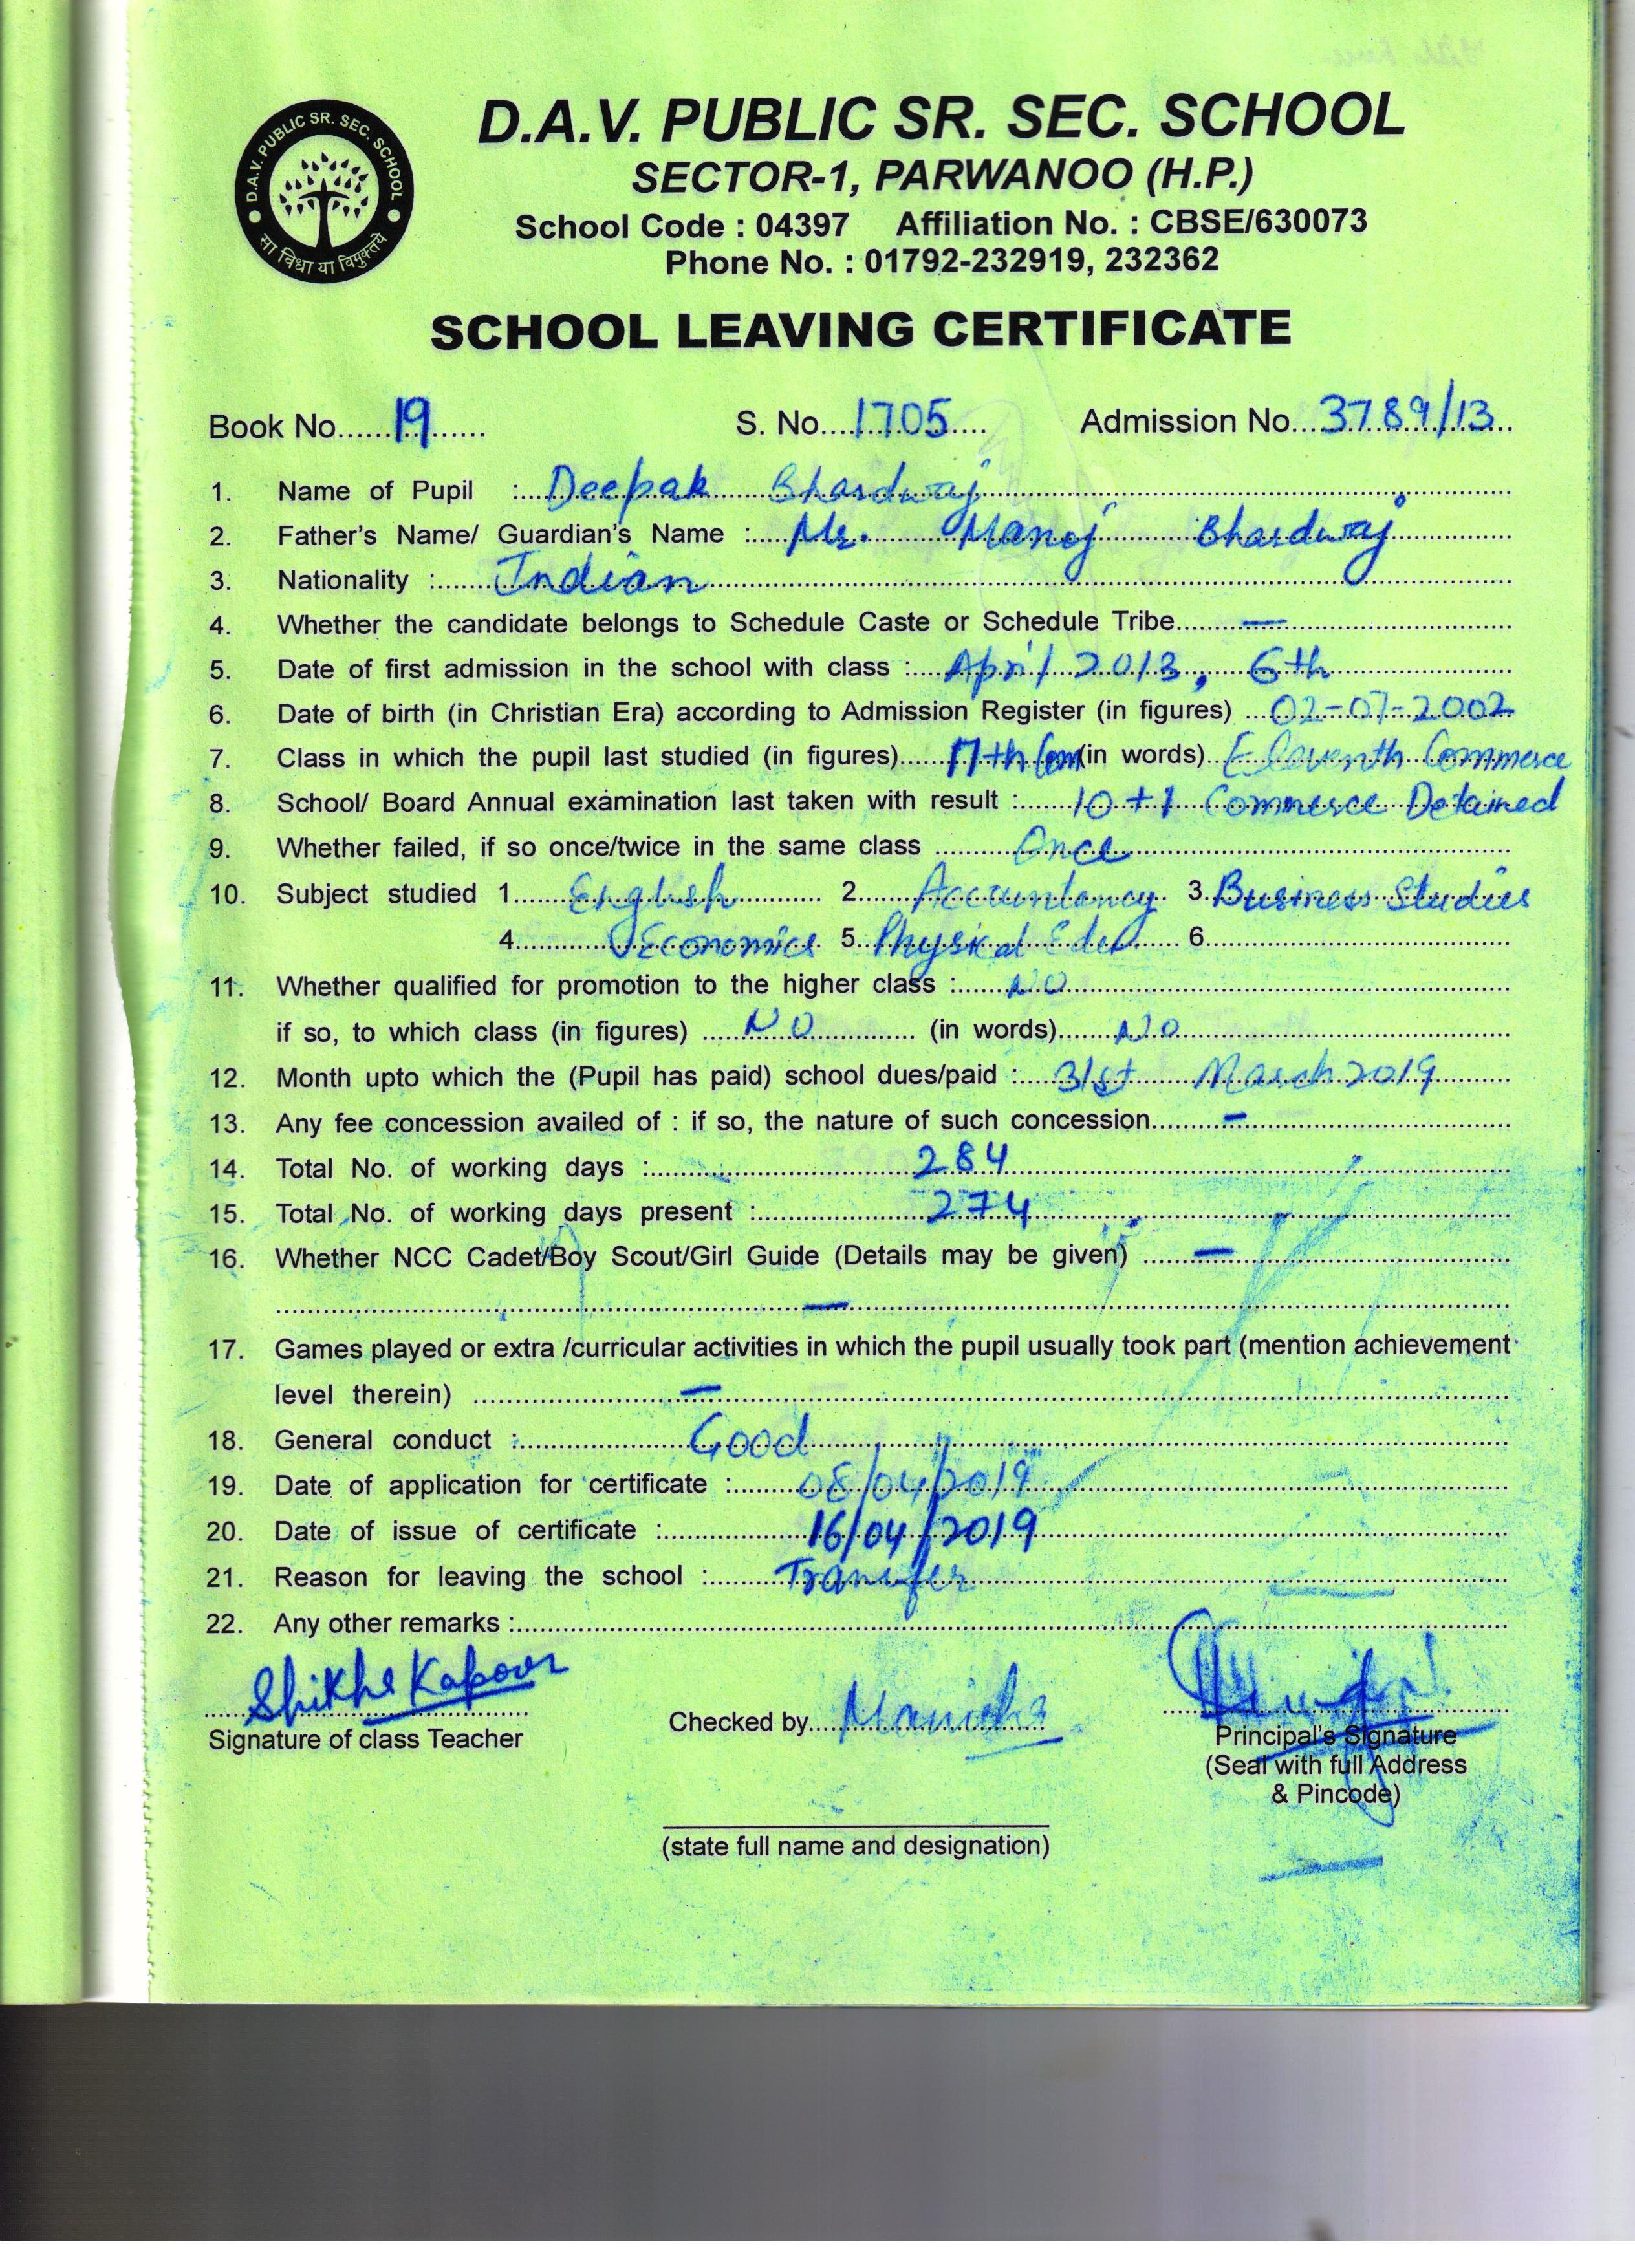 D.A.V. PUBLIC SR. SEC. SCHOOL
सा विद्या या विमुक्तये
D.A.V. PUBLIC SR. SEC. SCHOOL
SECTOR-1, PARWANOO (H.P.)
School Code : 04397 Affiliation No. : CBSE/630073
Phone No. : 01792-232919, 232362
SCHOOL LEAVING CERTIFICATE
Book No......19...... S. No....1705.... Admission No...3789/13..
1. Name of Pupil :...Deepak Bhardwaj...
2. Father's Name/ Guardian's Name :...Mr. Manoj Bhardwaj...
3. Nationality :...Indian...
4. Whether the candidate belongs to Schedule Caste or Schedule Tribe...—...
5. Date of first admission in the school with class :...April 2013, 6th...
6. Date of birth (in Christian Era) according to Admission Register (in figures) ...02-07-2002
7. Class in which the pupil last studied (in figures)...11th Com(in words)...Eleventh Commerce
8. School/ Board Annual examination last taken with result :...10+1 Commerce Detained
9. Whether failed, if so once/twice in the same class ...Once...
10. Subject studied 1...English... 2...Accountancy. 3.Business Studies
4...Economics. 5..Physical Edu... 6...
11. Whether qualified for promotion to the higher class :...NO...
if so, to which class (in figures) ...NO... (in words)...NO...
12. Month upto which the (Pupil has paid) school dues/paid :...31st March 2019
13. Any fee concession availed of : if so, the nature of such concession...-...
14. Total No. of working days :...284...
15. Total No. of working days present :...274...
16. Whether NCC Cadet/Boy Scout/Girl Guide (Details may be given) ...—...
...—...
17. Games played or extra /curricular activities in which the pupil usually took part (mention achievement
level therein) ...—...
18. General conduct :...Good...
19. Date of application for certificate :...08/04/2019...
20. Date of issue of certificate :...16/04/2019...
21. Reason for leaving the school :...Transfer...
22. Any other remarks :...
Shikha Kapoor
Signature of class Teacher
Checked by...Manisha
Principal's Signature
(Seal with full Address
& Pincode)
(state full name and designation)